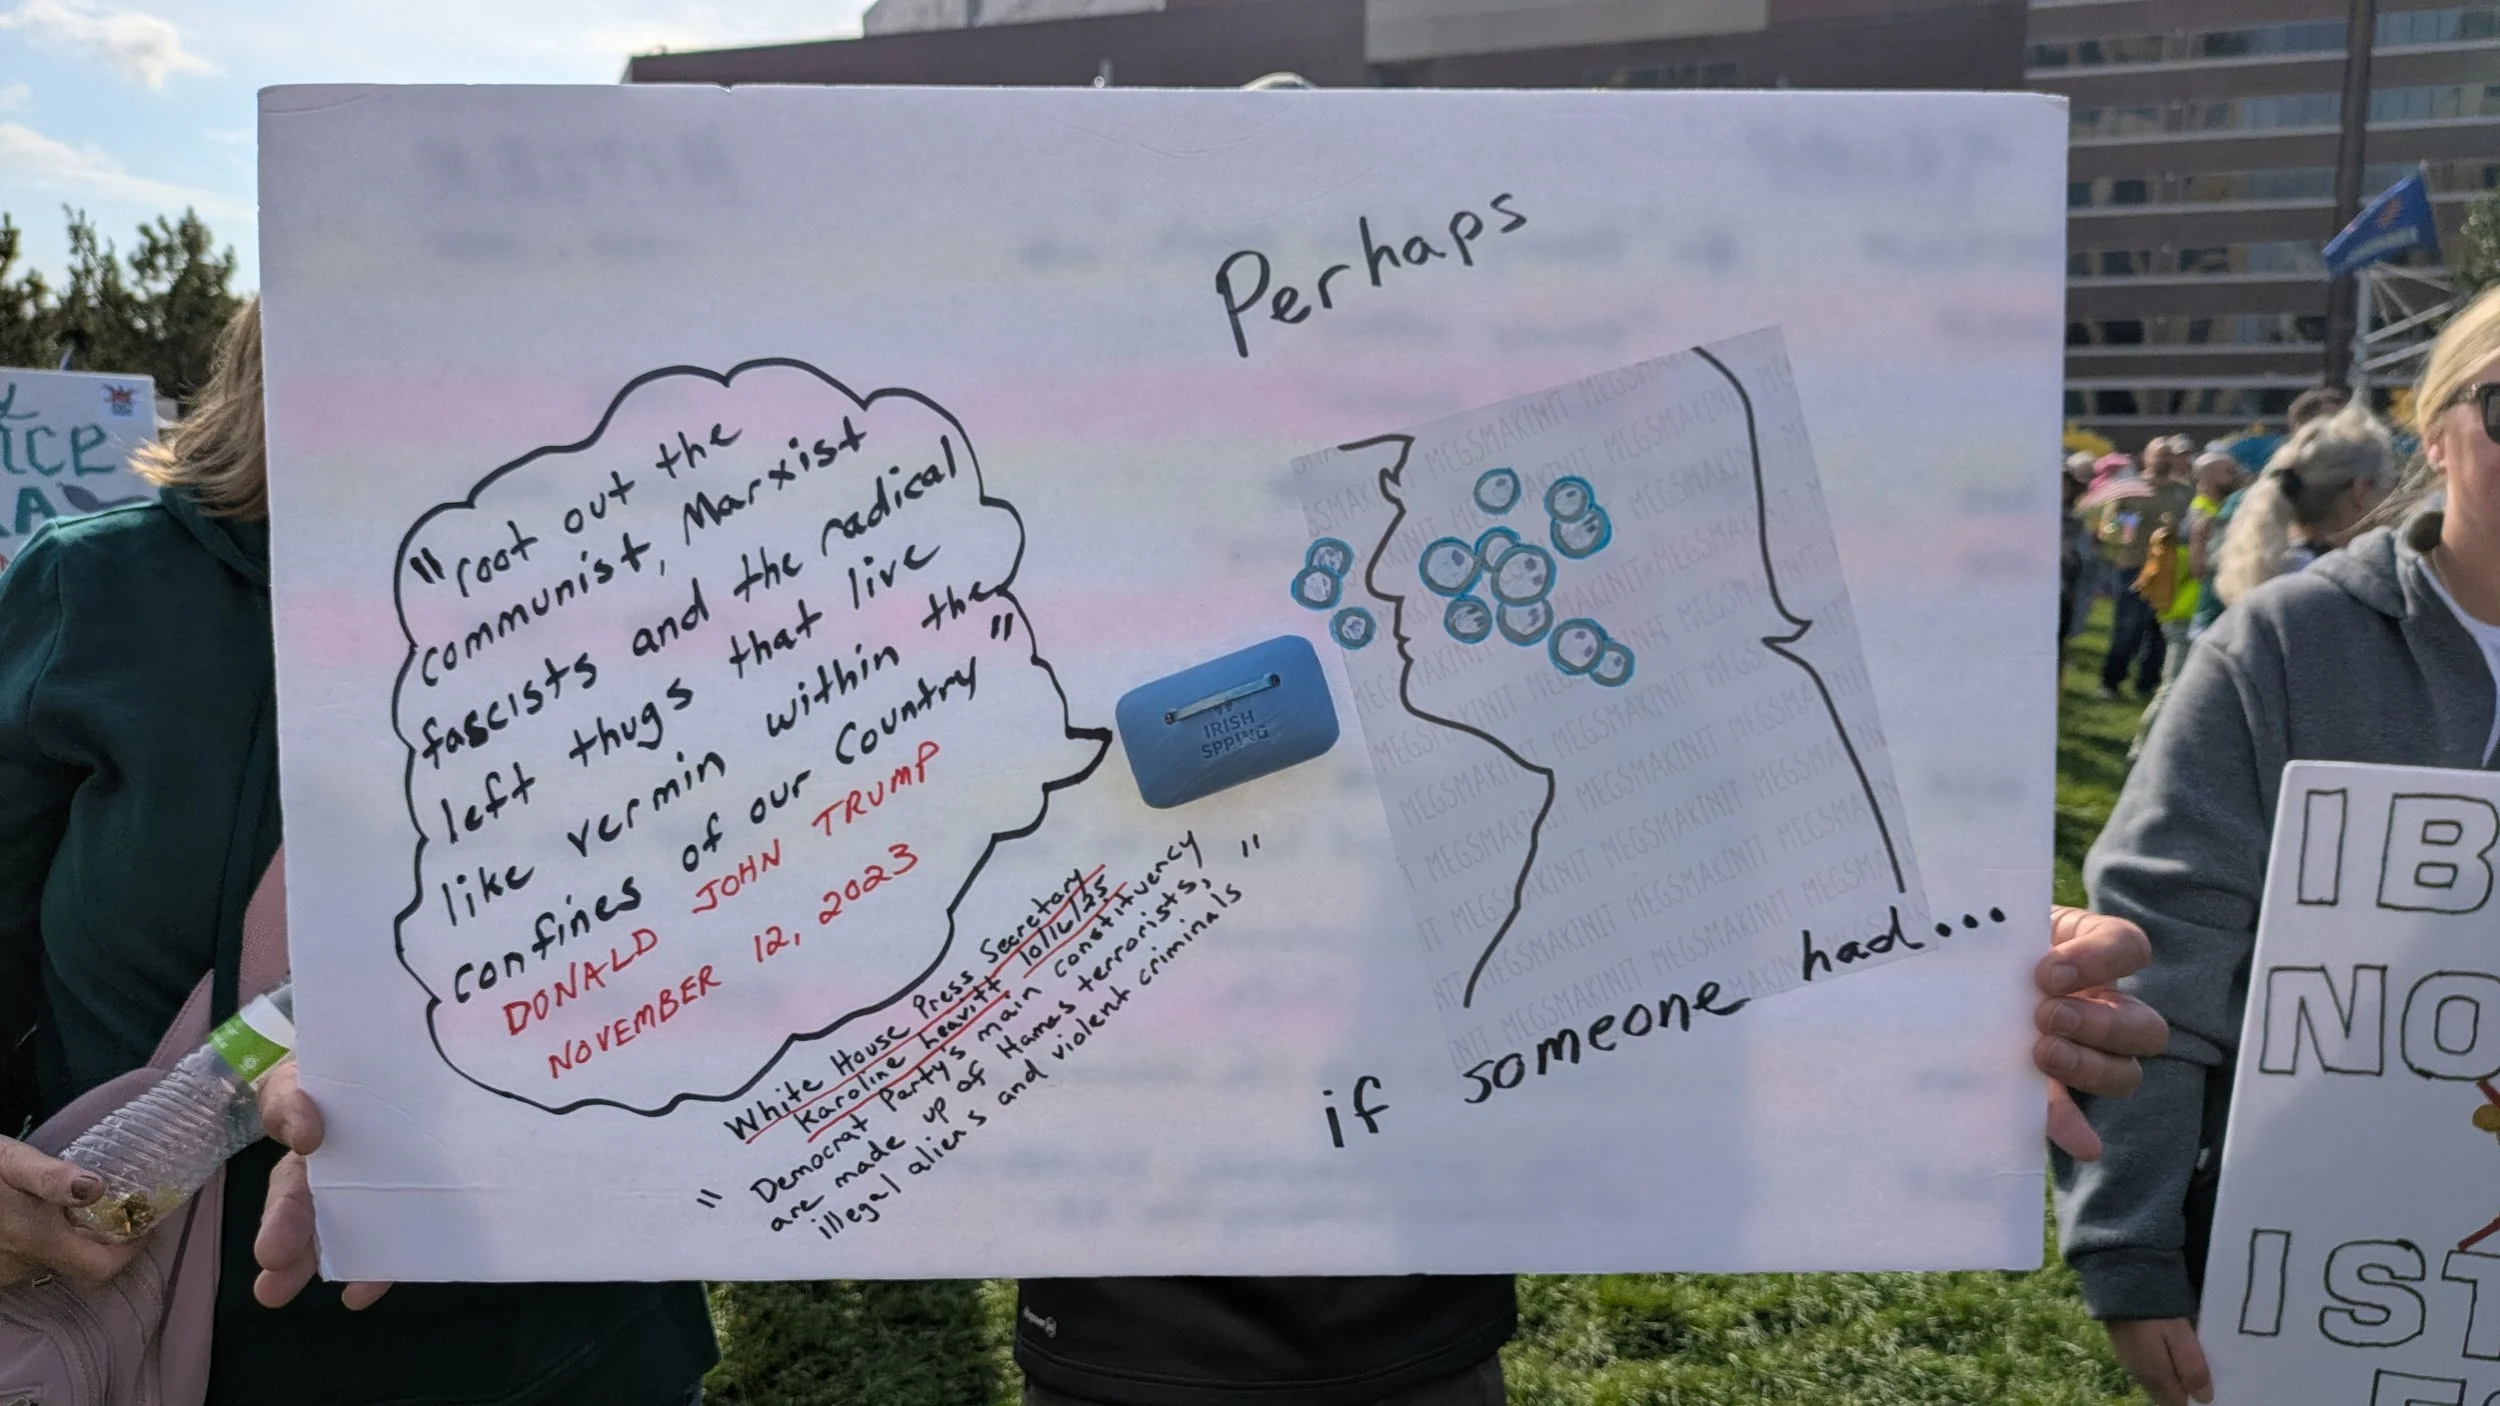 Perhaps
"root out the
communist, Marxist
fascists and the radical
left thugs that live
like vermin within the
confines of our Country"
DONALD JOHN TRUMP
NOVEMBER 12, 2023
IRISH
SPRING
White House Press Secretary
Karoline Leavitt 10/16/25
" Democrat Party's main constituency
are made up of Hamas terrorists,
illegal aliens and violent criminals "
MEGSMAKINIT MEGSMAKINIT MEGSMAKINIT
if someone had...
ICE
A
I B
NO
IST